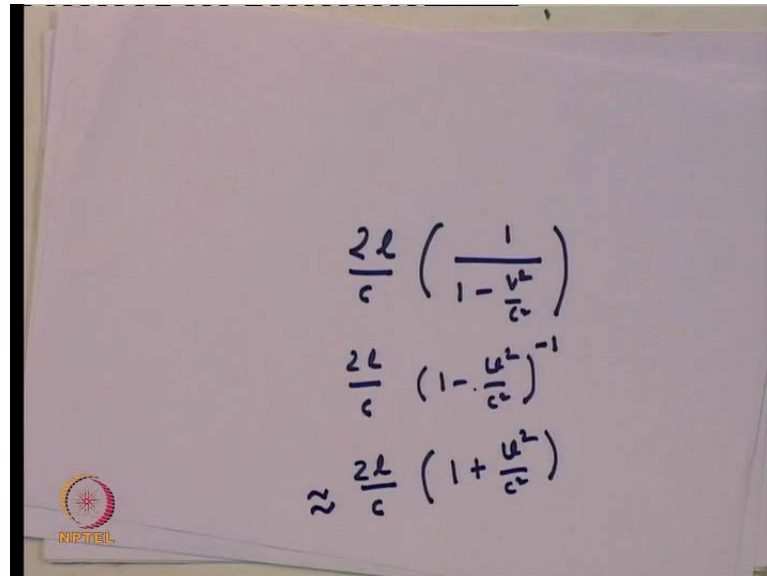 2l/c ( 1 / (1 - v²/c²) )
2l/c (1 - v²/c²)⁻¹
≈ 2l/c (1 + v²/c²)
NPTEL